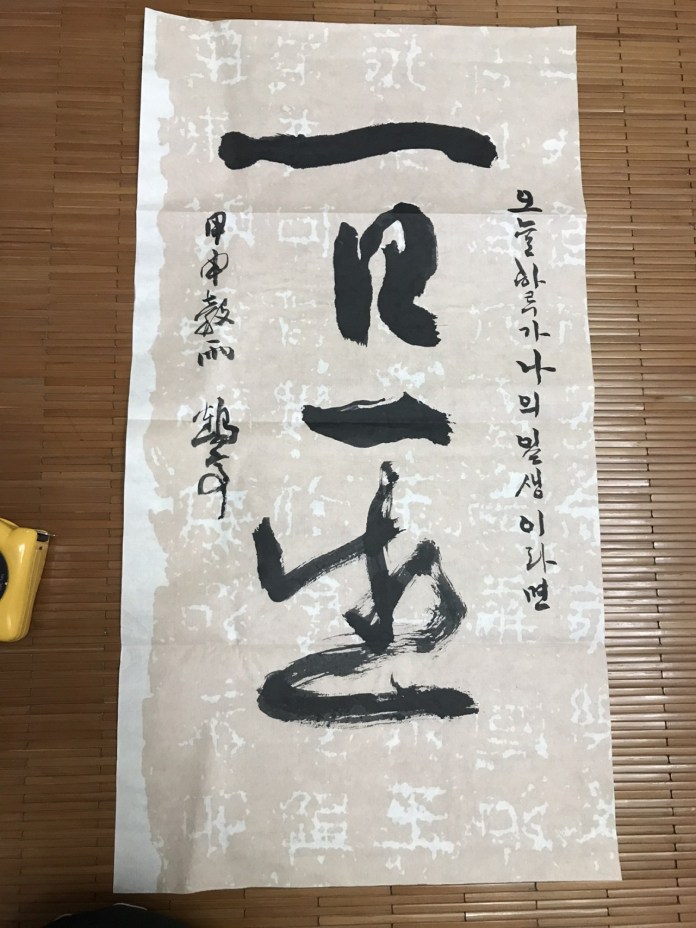 오늘하루가나의일생이라면
一日一生
甲申穀雨